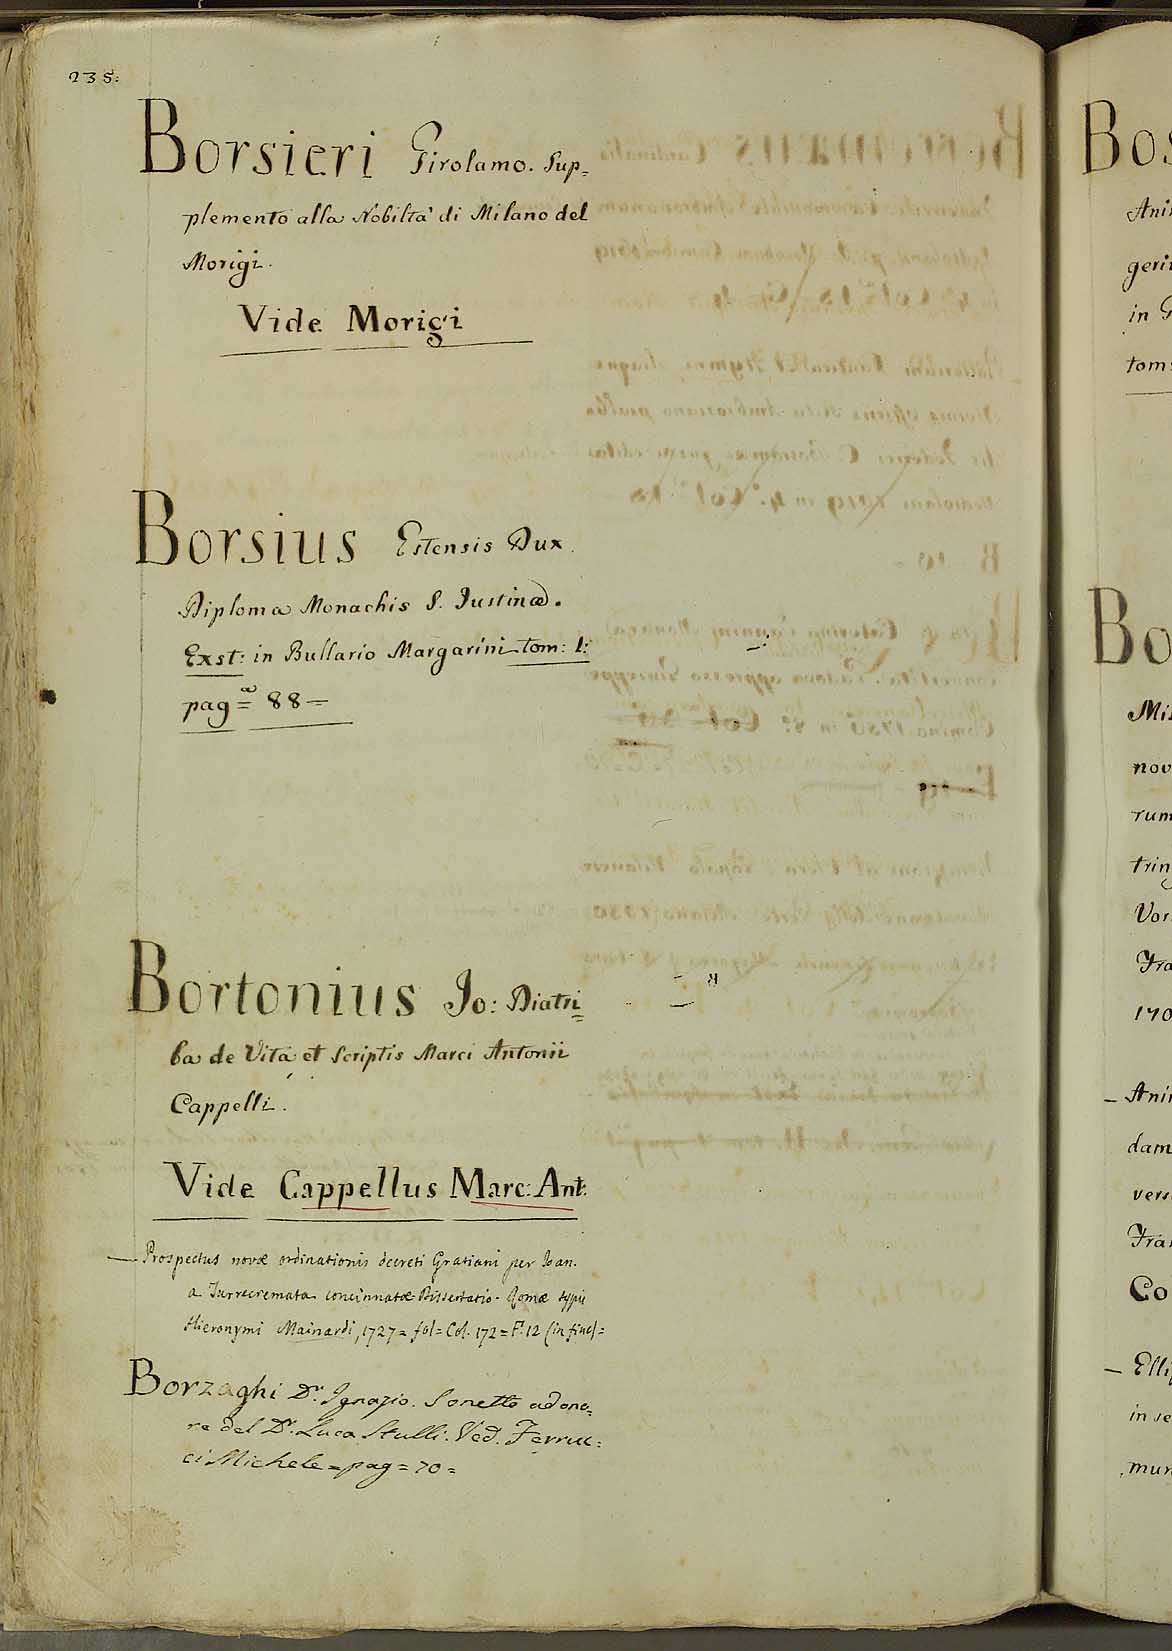 235:
Borsieri Girolamo. Sup=
plemento alla Nobiltà di Milano del
Morigi.
Vide Morigi
Borsius Estensis Dux.
Diploma Monachis S. Justinæ.
Exst: in Bullario Margarini tom: 1:
pag=ᵃ 88=
Bortonius Jo: Diatri=
ba de Vita, et Scriptis Marci Antonii
Cappelli.
Vide Cappellus Marc: Ant:
— Prospectus novæ ordinationis decreti Gratiani per Joan.
a Turrecremata concinnatæ Dissertatio. Romæ typis
Hieronymi Mainardi, 1727= fol= Col. 172= F. 12 (in fine)=
Borzaghi Dr. Ignazio. Sonetto ad ono=
re del Dr. Luca Stulli. Ved. Ferruc=
ci Michele= pag= 70=
Bos
Ani
geri
in
tom:
Bo
Mi
nov
rum
trin
Vos
Fra
170
— Ani
dam
vers
Fra
Co
— Elli
in se
mun